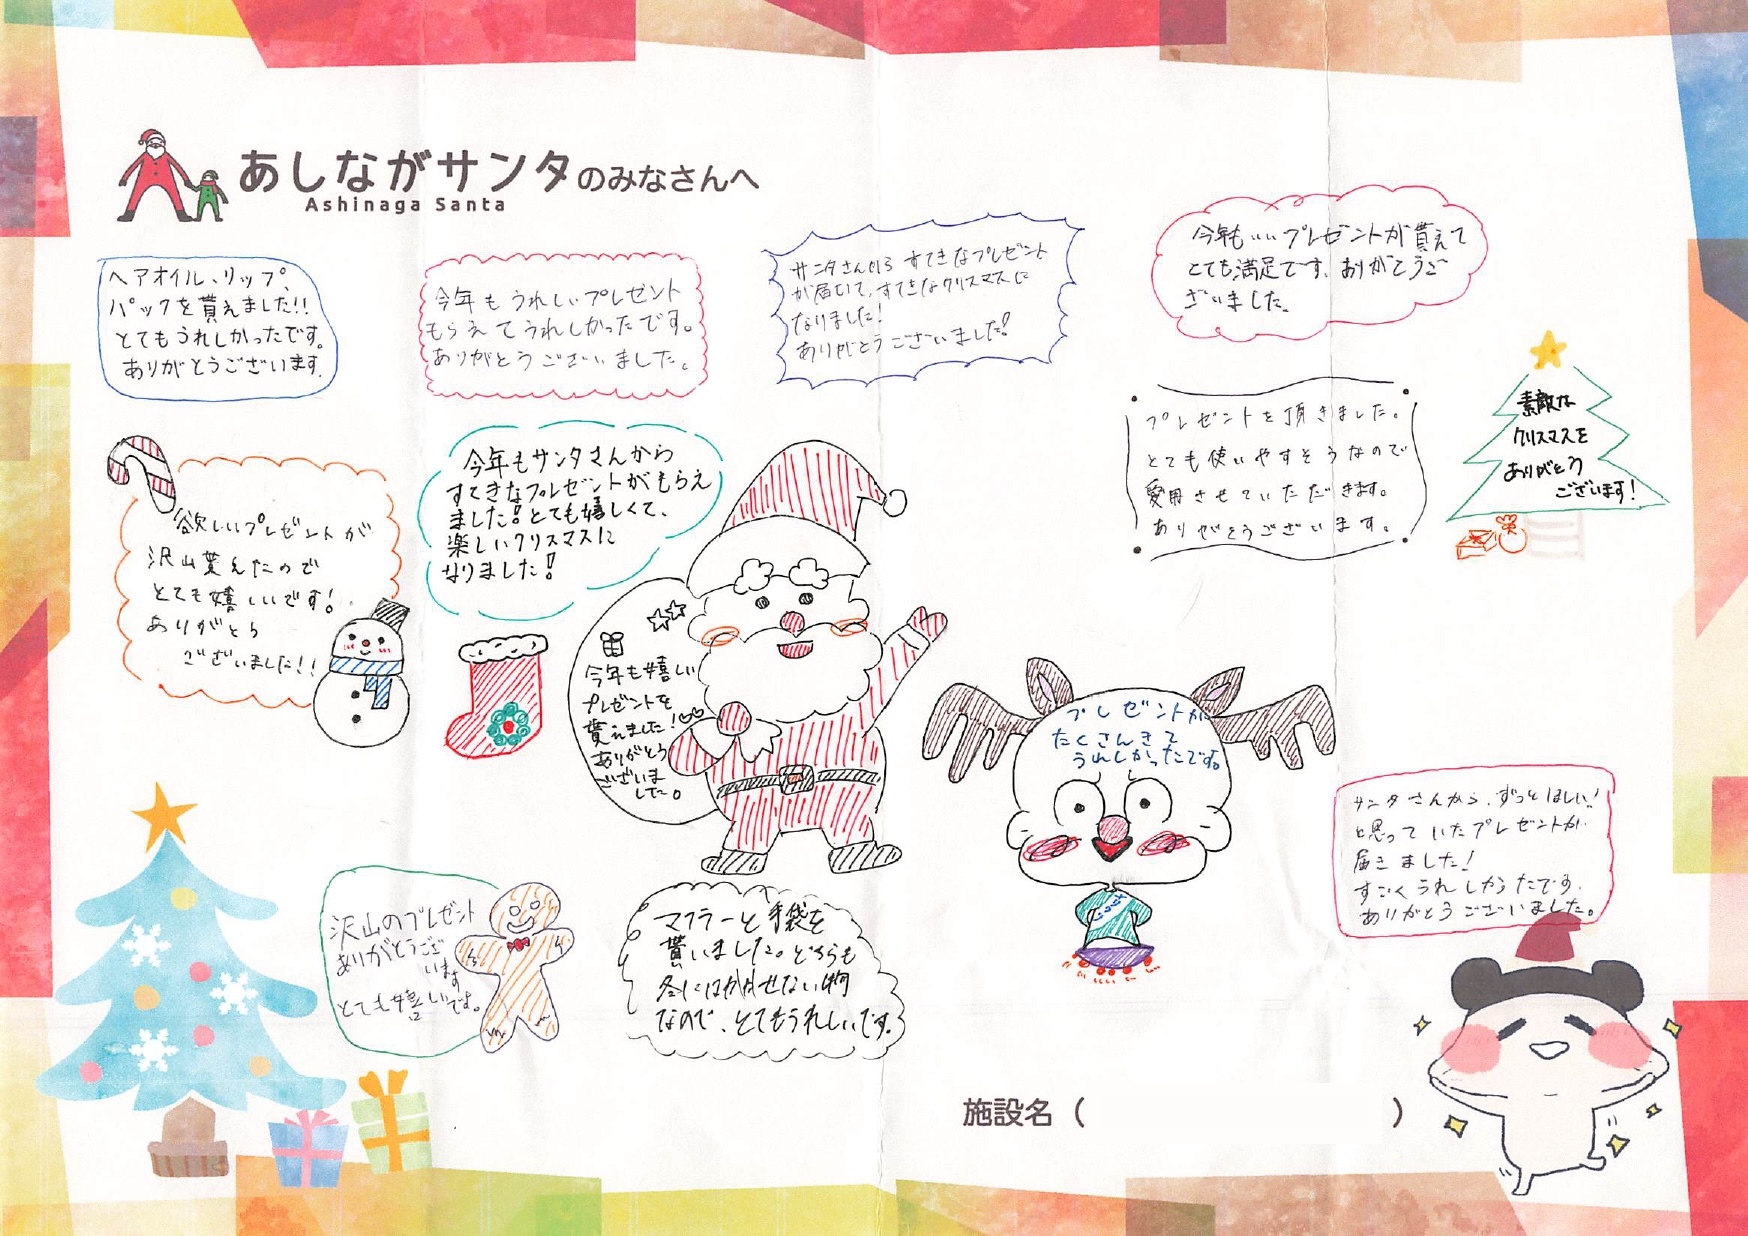 あしながサンタのみなさんへ
Ashinaga Santa
ヘアオイル、リップ、
パックを貰えました!!
とてもうれしかったです。
ありがとうございます。
今年もうれしいプレゼント
もらえてうれしかったです。
ありがとうございました。
サンタさんからすてきなプレゼント
が届いて、すてきなクリスマスに
なりました!
ありがとうございました!
今年もいいプレゼントが貰えて
とても満足です。ありがとうご
ざいました。
プレゼントを頂きました。
とても使いやすそうなので
愛用させていただきます。
ありがとうございます。
素敵な
クリスマスを
ありがとう
ございます!
欲しいプレゼントが
沢山貰えたので
とても嬉しいです!
ありがとう
ございました!!
今年もサンタさんから
すてきなプレゼントがもらえ
ました!とても嬉しくて、
楽しいクリスマスに
なりました!
今年も嬉しい
プレゼントを
貰えました!
ありがとう
ございま
した。
プレゼントが
たくさんきて
うれしかったです。
サンタさんから、ずっとほしい!
と思っていたプレゼントが
届きました!
すごくうれしかったです。
ありがとうございました。
沢山のプレゼント
ありがとうござ
います
とても嬉しいです。
マフラーと手袋を
貰いました。どちらも
冬にはかかせない物
なので、とてもうれしいです。
施設名（　　　）